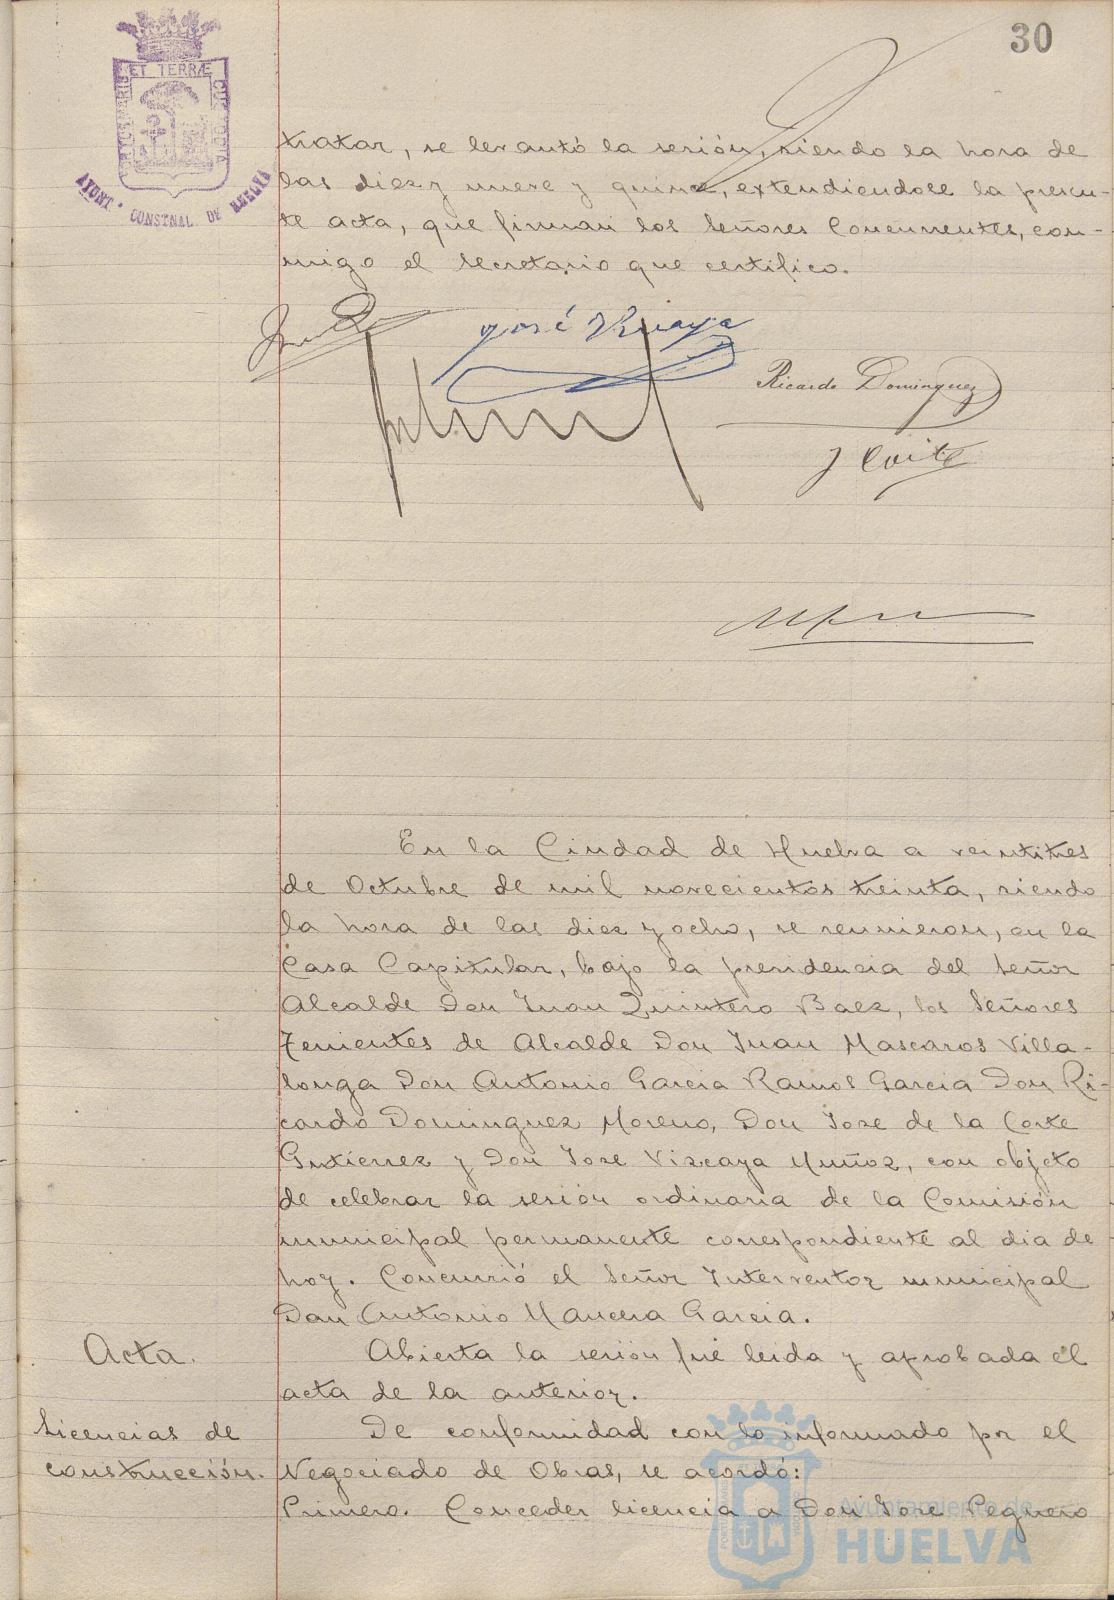 30
PORTUS MARIS ET TERRÆ CUSTODIA
AYUNT. CONSTNAL DE HUELVA
tratar, se levantó la sesión, siendo la hora de
las diez y nueve y quince, extendiendose la presen-
te acta, que firman los Señores Concurrentes, con-
migo el Secretario que certifico.
José Vizcaya
Ricardo Dominguez
J Corte
En la Ciudad de Huelva a veintitres
de Octubre de mil novecientos treinta, siendo
la hora de las diez y ocho, se reunieron, en la
Casa Capitular, bajo la presidencia del Señor
Alcalde Don Juan Quintero Baez, los Señores
Tenientes de Alcalde Don Juan Mascaros Villa-
longa Don Antonio Garcia Ramos Garcia Don Ri-
cardo Dominguez Moreno, Don Jose de la Corte
Gutierrez y Don Jose Vizcaya Muñoz, con objeto
de celebrar la sesión ordinaria de la Comisión
municipal permanente correspondiente al dia de
hoy. Concurrió el Señor Interventor municipal
Don Antonio Mancera Garcia.
Acta.
Abierta la sesión fué leida y aprobada el
acta de la anterior.
Licencias de
construcción.
De conformidad con lo informado por el
Negociado de Obras, se acordó:
Primero. Conceder licencia a Don Jose Peguero
Ayuntamiento de
HUELVA